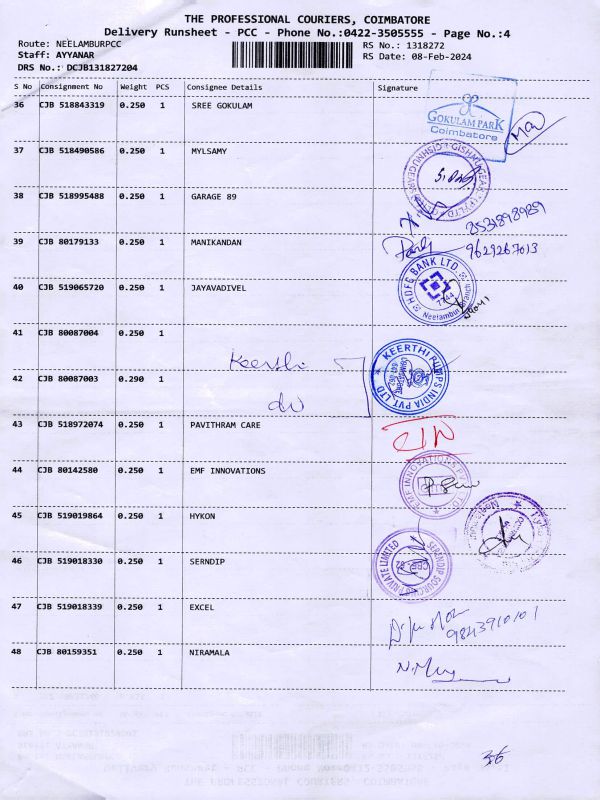 THE PROFESSIONAL COURIERS, COIMBATORE
Delivery Runsheet - PCC - Phone No.:0422-3505555 - Page No.:4
Route: NEELAMBURPCC RS No.: 1318272
Staff: AYYANAR RS Date: 08-Feb-2024
DRS No.: DCJB131827204
S No Consignment No Weight PCS Consignee Details Signature
36 CJB 518843319 0.250 1 SREE GOKULAM
GOKULAM PARK
Coimbatore
37 CJB 518490586 0.250 1 MYLSAMY
38 CJB 518995488 0.250 1 GARAGE 89
8531898989
39 CJB 80179133 0.250 1 MANIKANDAN
9629267013
40 CJB 519065720 0.250 1 JAYAVADIVEL
HDFC BANK LTD
Neelambur Branch
41 CJB 80087004 0.250 1
Keerthi
KEERTHI PUMPS INDIA PVT LTD
42 CJB 80087003 0.290 1
do
43 CJB 518972074 0.250 1 PAVITHRAM CARE
44 CJB 80142580 0.250 1 EMF INNOVATIONS
EMF INNOVATIONS PVT LTD
45 CJB 519019864 0.250 1 HYKON
46 CJB 519018330 0.250 1 SERNDIP
SERENDIP SOURCING PRIVATE LIMITED
CBE-62
47 CJB 519018339 0.250 1 EXCEL
9843910101
48 CJB 80159351 0.250 1 NIRAMALA
36